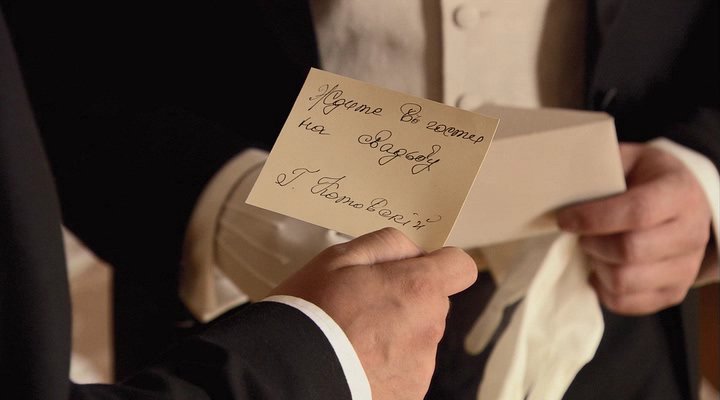 Ждите въ гости
на свадьбу
Г. Котовскій